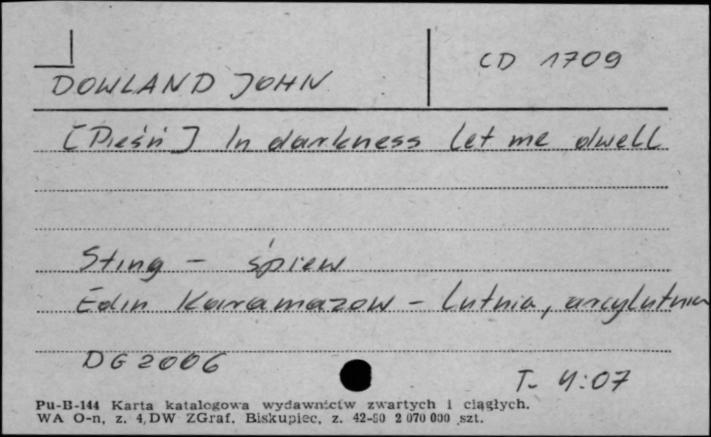 CD 1709
DOWLAND JOHN
[Pieśń] In darkness let me dwell
Sting - śpiew
Edin Karamazow - lutnia, arcylutnia
DG 2006
T- 4:07
Pu-B-144 Karta katalogowa wydawnictw zwartych i ciągłych.
WA O-n, z. 4, DW ZGraf. Biskupiec, z. 42-80 2 070 000 szt.